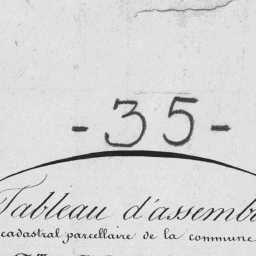 - 35 -
Tableau d'assemb
cadastral parcellaire de la commune